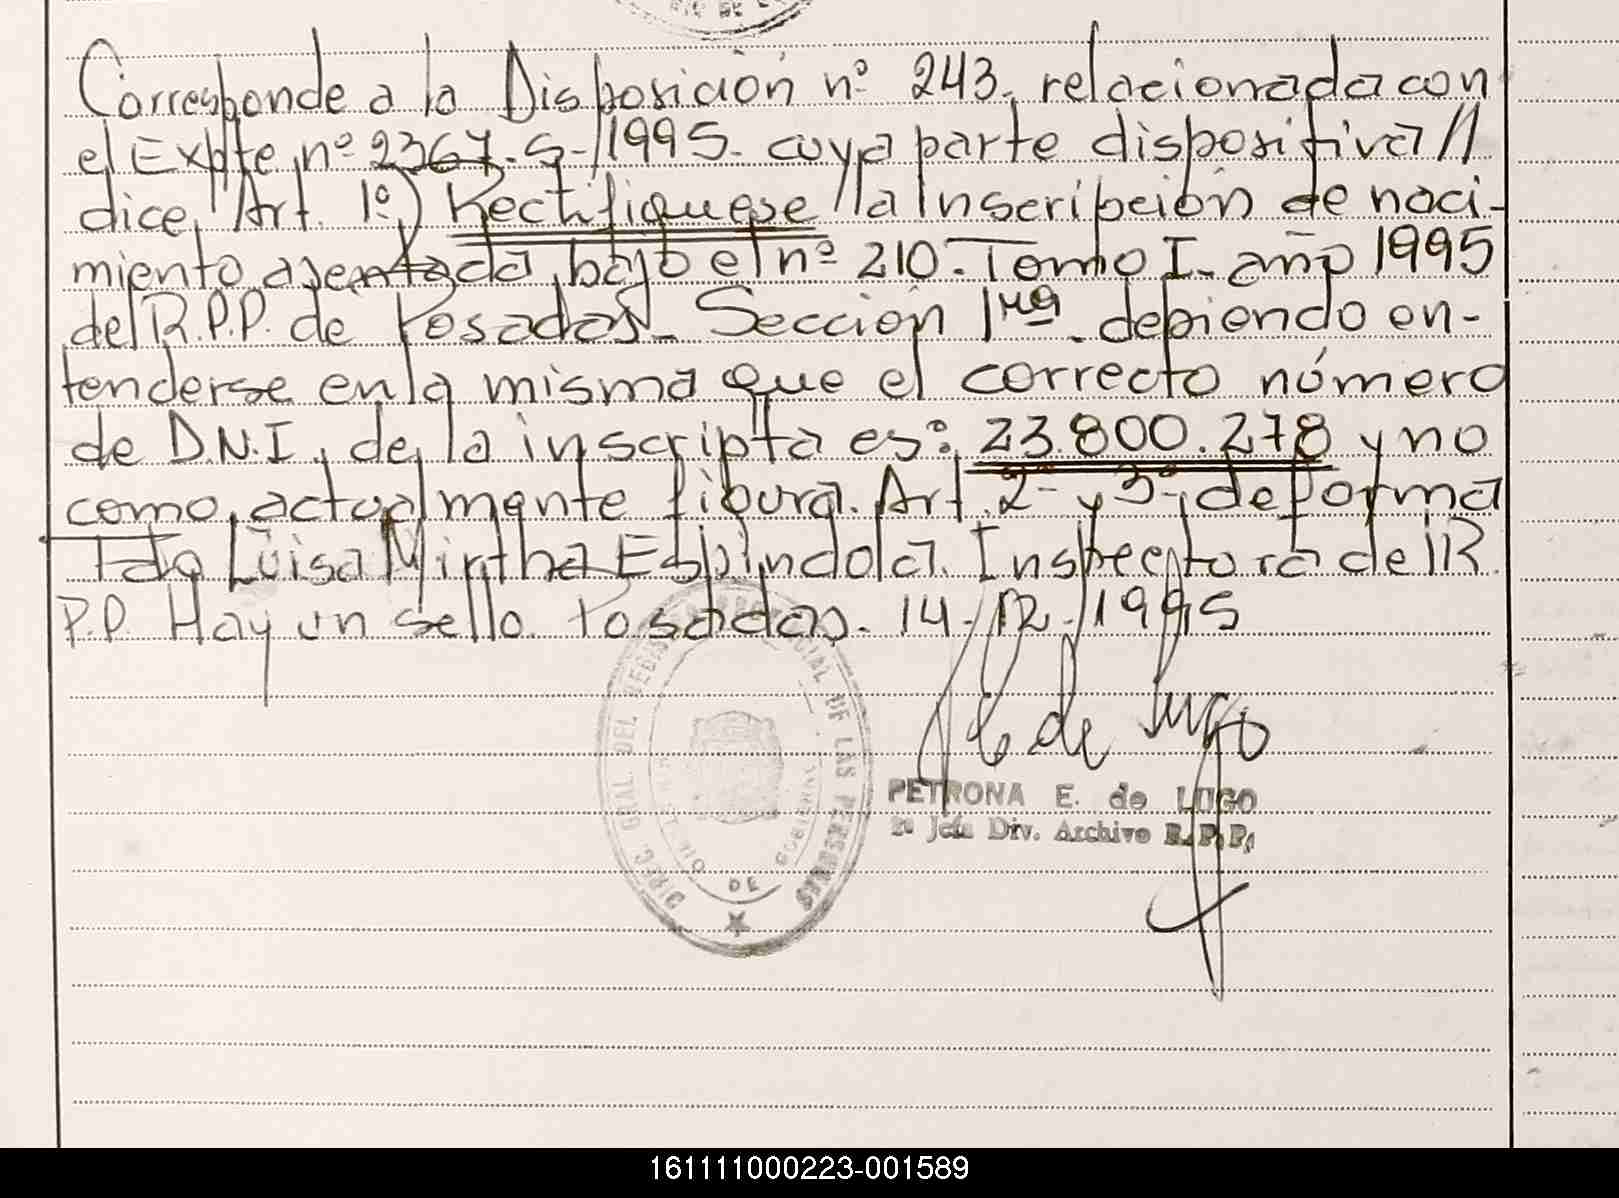 Corresponde a la Disposición nº 243, relacionada con
el Expte nº 2367-S-/1995. cuya parte dispositiva //
dice, Art. 1º) Rectifiquese la Inscripción de naci-
miento asentada, bajo el nº 210. Tomo I. año 1995
del R.P.P. de Posadas. Sección 1ra. debiendo en-
tenderse en la misma que el correcto número
de D.N.I, de la inscripta es: 23.800.278 y no
como, actualmente figura. Art. 2º y 3º, de forma
Fdo Luisa Mirtha Espindola. Inspectora del R.
P.P. Hay un sello. Posadas. 14/12/1995
DIREC. GRAL. DEL REGISTRO PROVINCIAL DE LAS PERSONAS
MINISTERIO DE GOBIERNO
de Lugo
PETRONA E. de LUGO
2º Jefa Div. Archivo R.P.P.
161111000223-001589